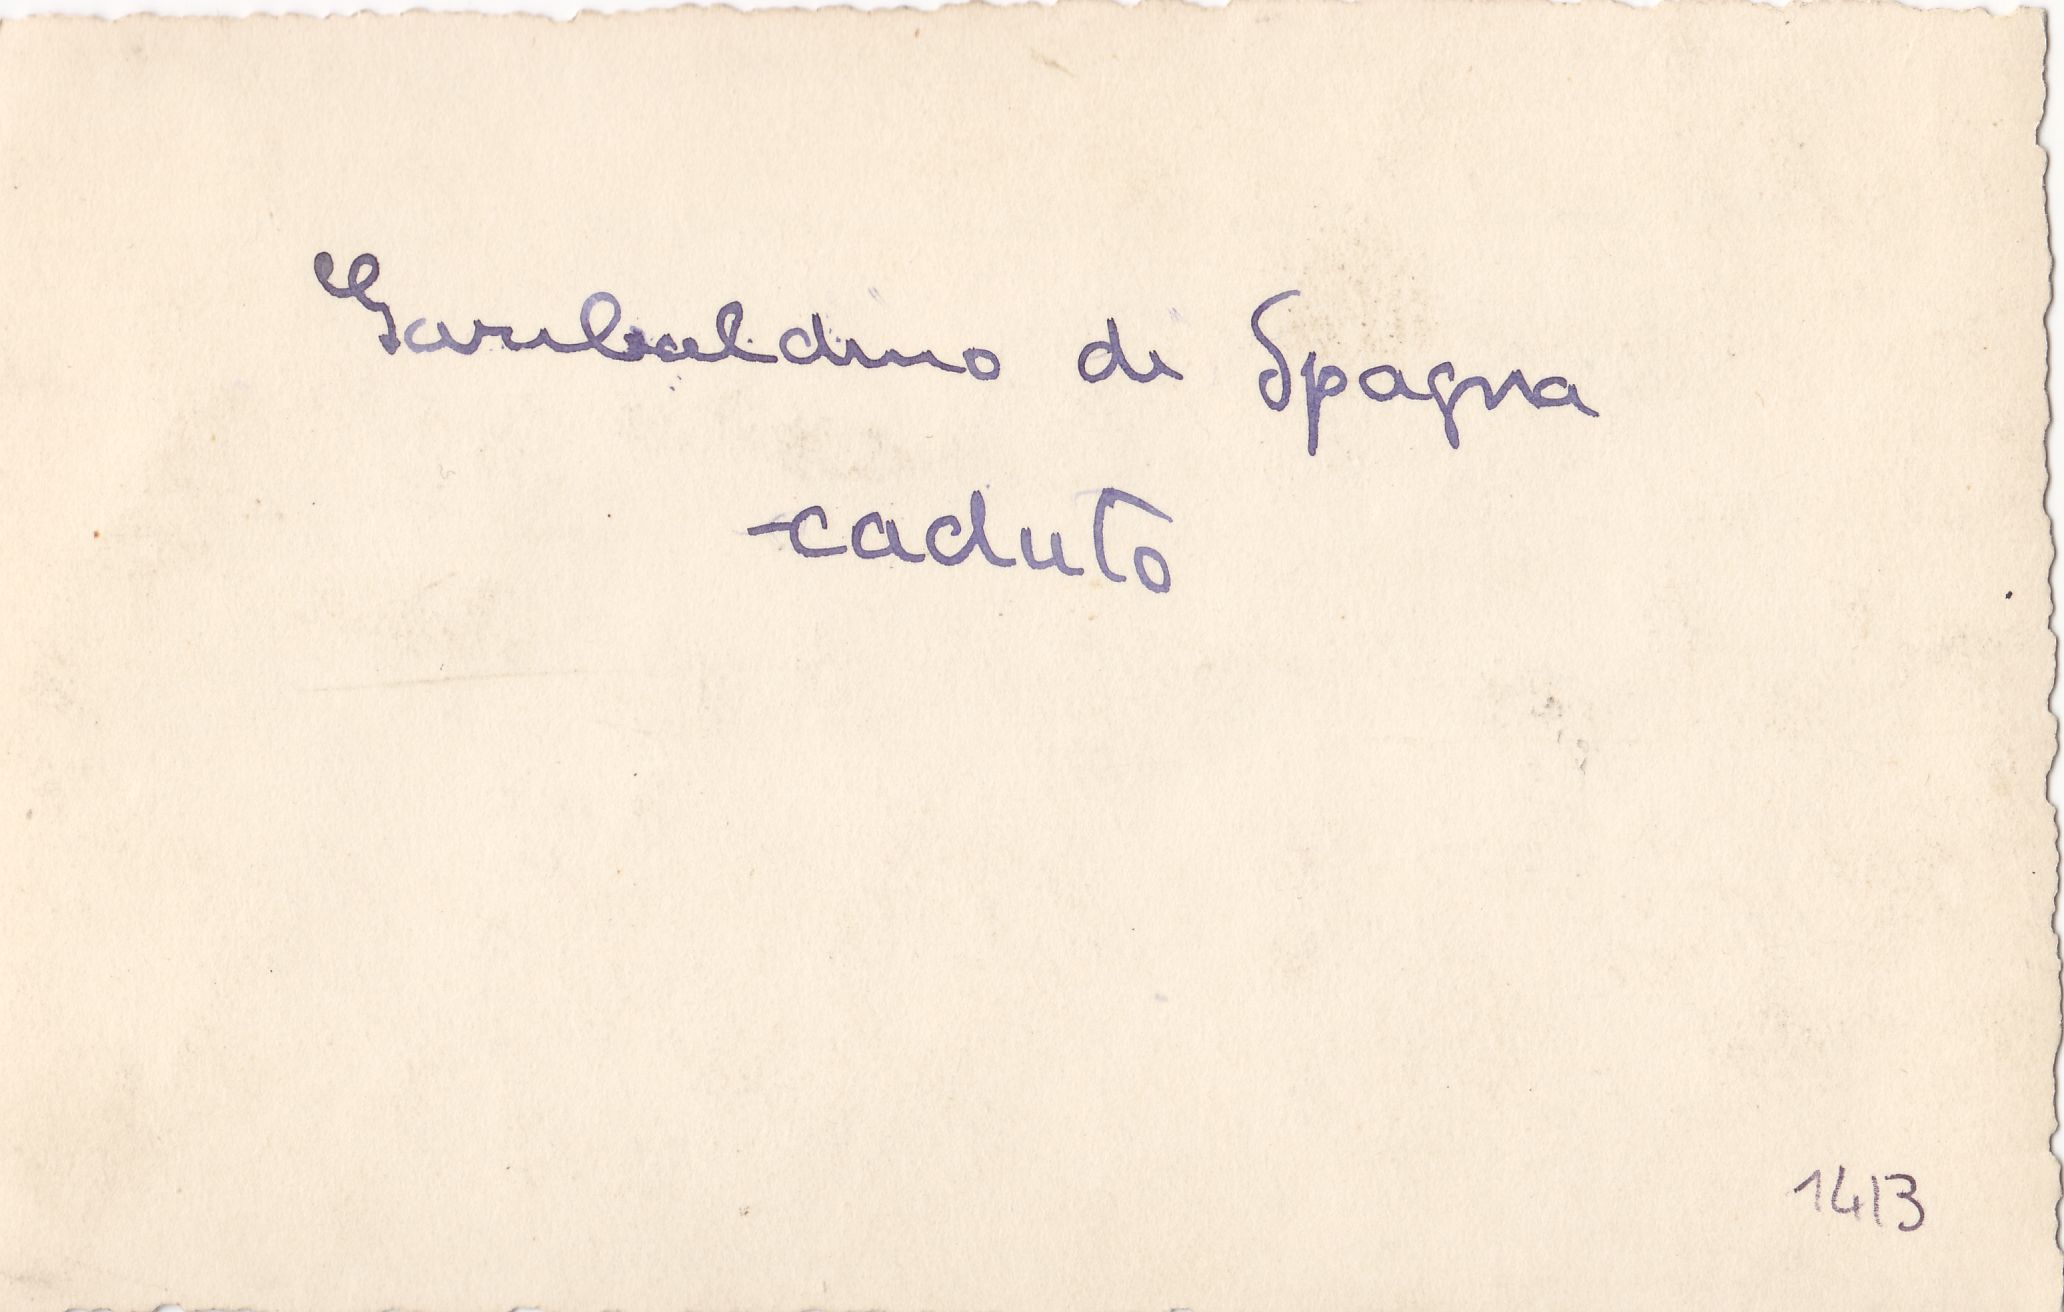 Garibaldino di Spagna
caduto
1413